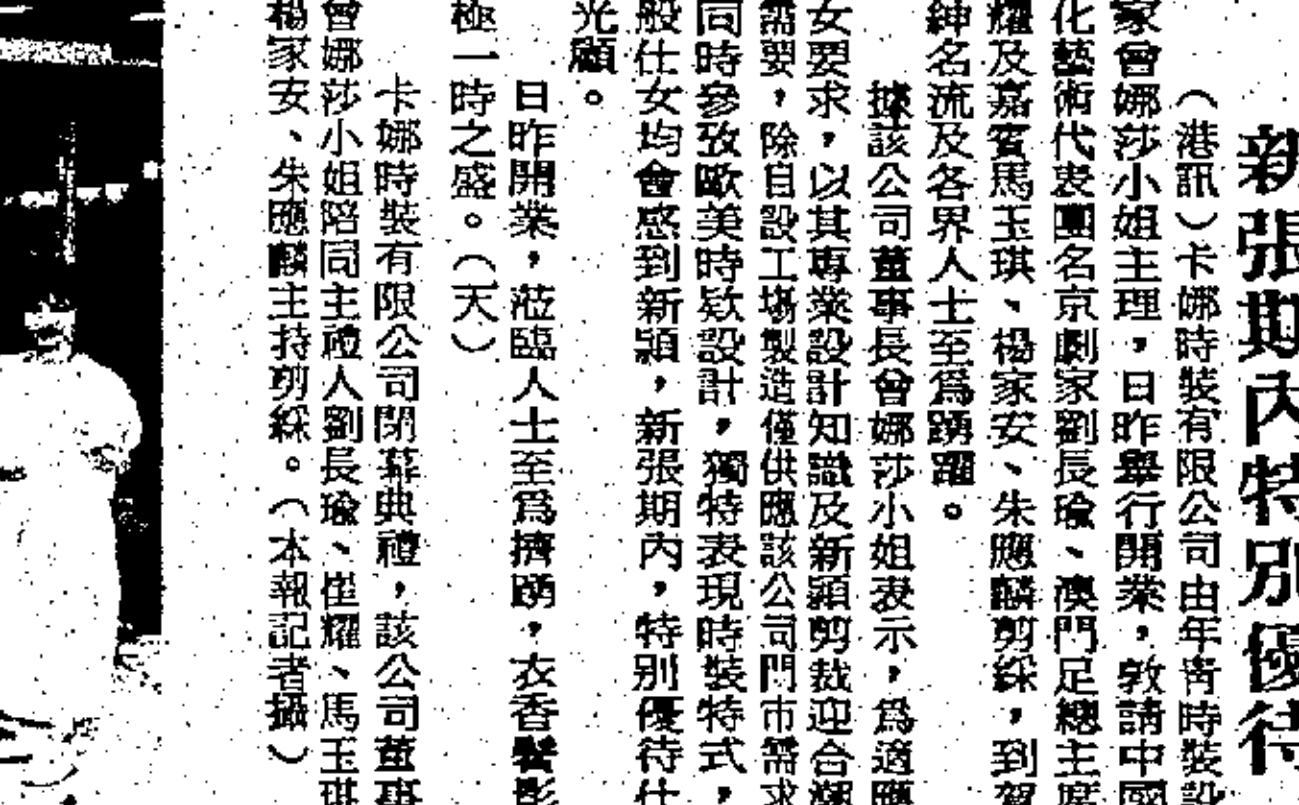 新張期內特別優待
（港訊）卡娜時裝有限公司由年青時裝設
家曾娜莎小姐主理，日昨舉行開業，敦請中國
化藝術代表團名京劇家劉長瑜、澳門足總主席
耀及嘉賓馬玉琪、楊家安、朱應麟剪綵，到賀
紳名流及各界人士至爲踴躍。
據該公司董事長曾娜莎小姐表示，爲適應
女要求，以其專業設計知識及新穎剪裁迎合潮
需要，除自設工場製造僅供應該公司門市需求
同時參攷歐美時款設計，獨特表現時裝特式，
般仕女均會感到新穎，新張期內，特別優待仕
光顧。
日昨開業，蒞臨人士至爲擠踴，衣香鬢影
極一時之盛。（天）
卡娜時裝有限公司閉幕典禮，該公司董事
曾娜莎小姐陪同主禮人劉長瑜、崔耀、馬玉琪
楊家安、朱應麟主持剪綵。（本報記者攝）